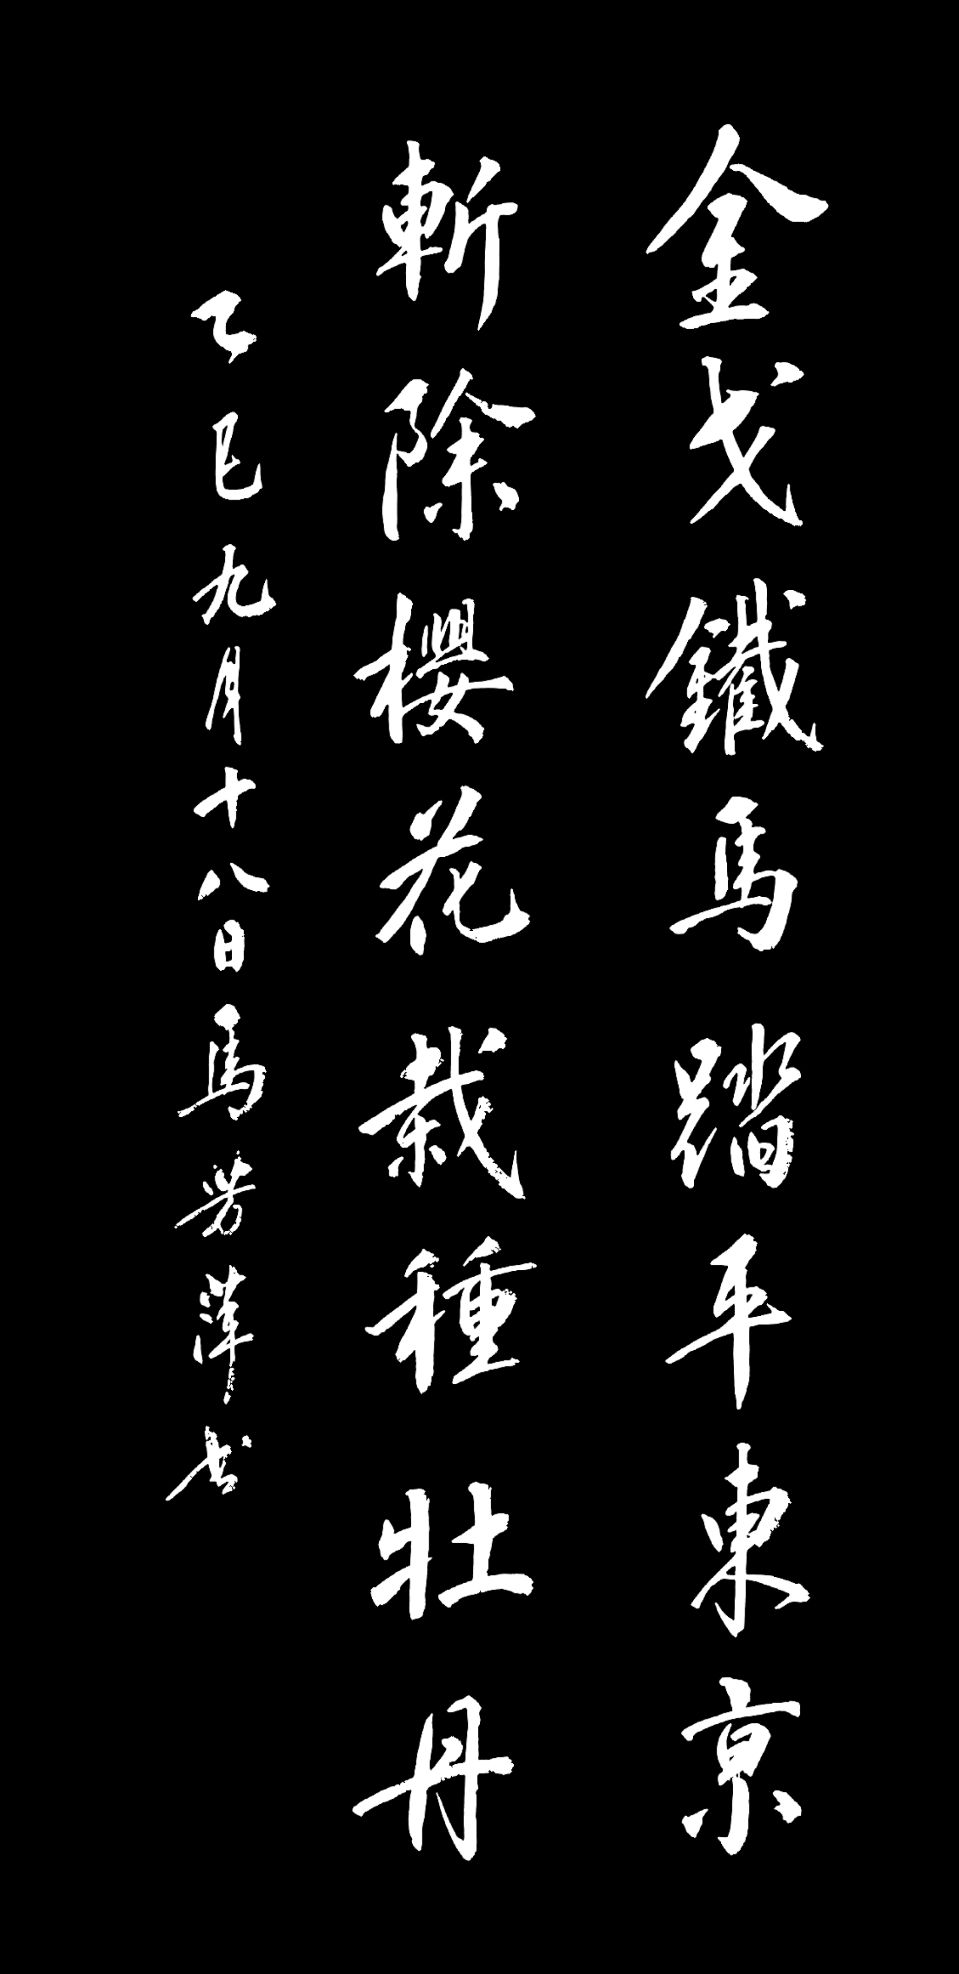 金戈鐵馬踏平東京
斬除櫻花栽種牡丹
乙巳九月十八日馬芳萍书